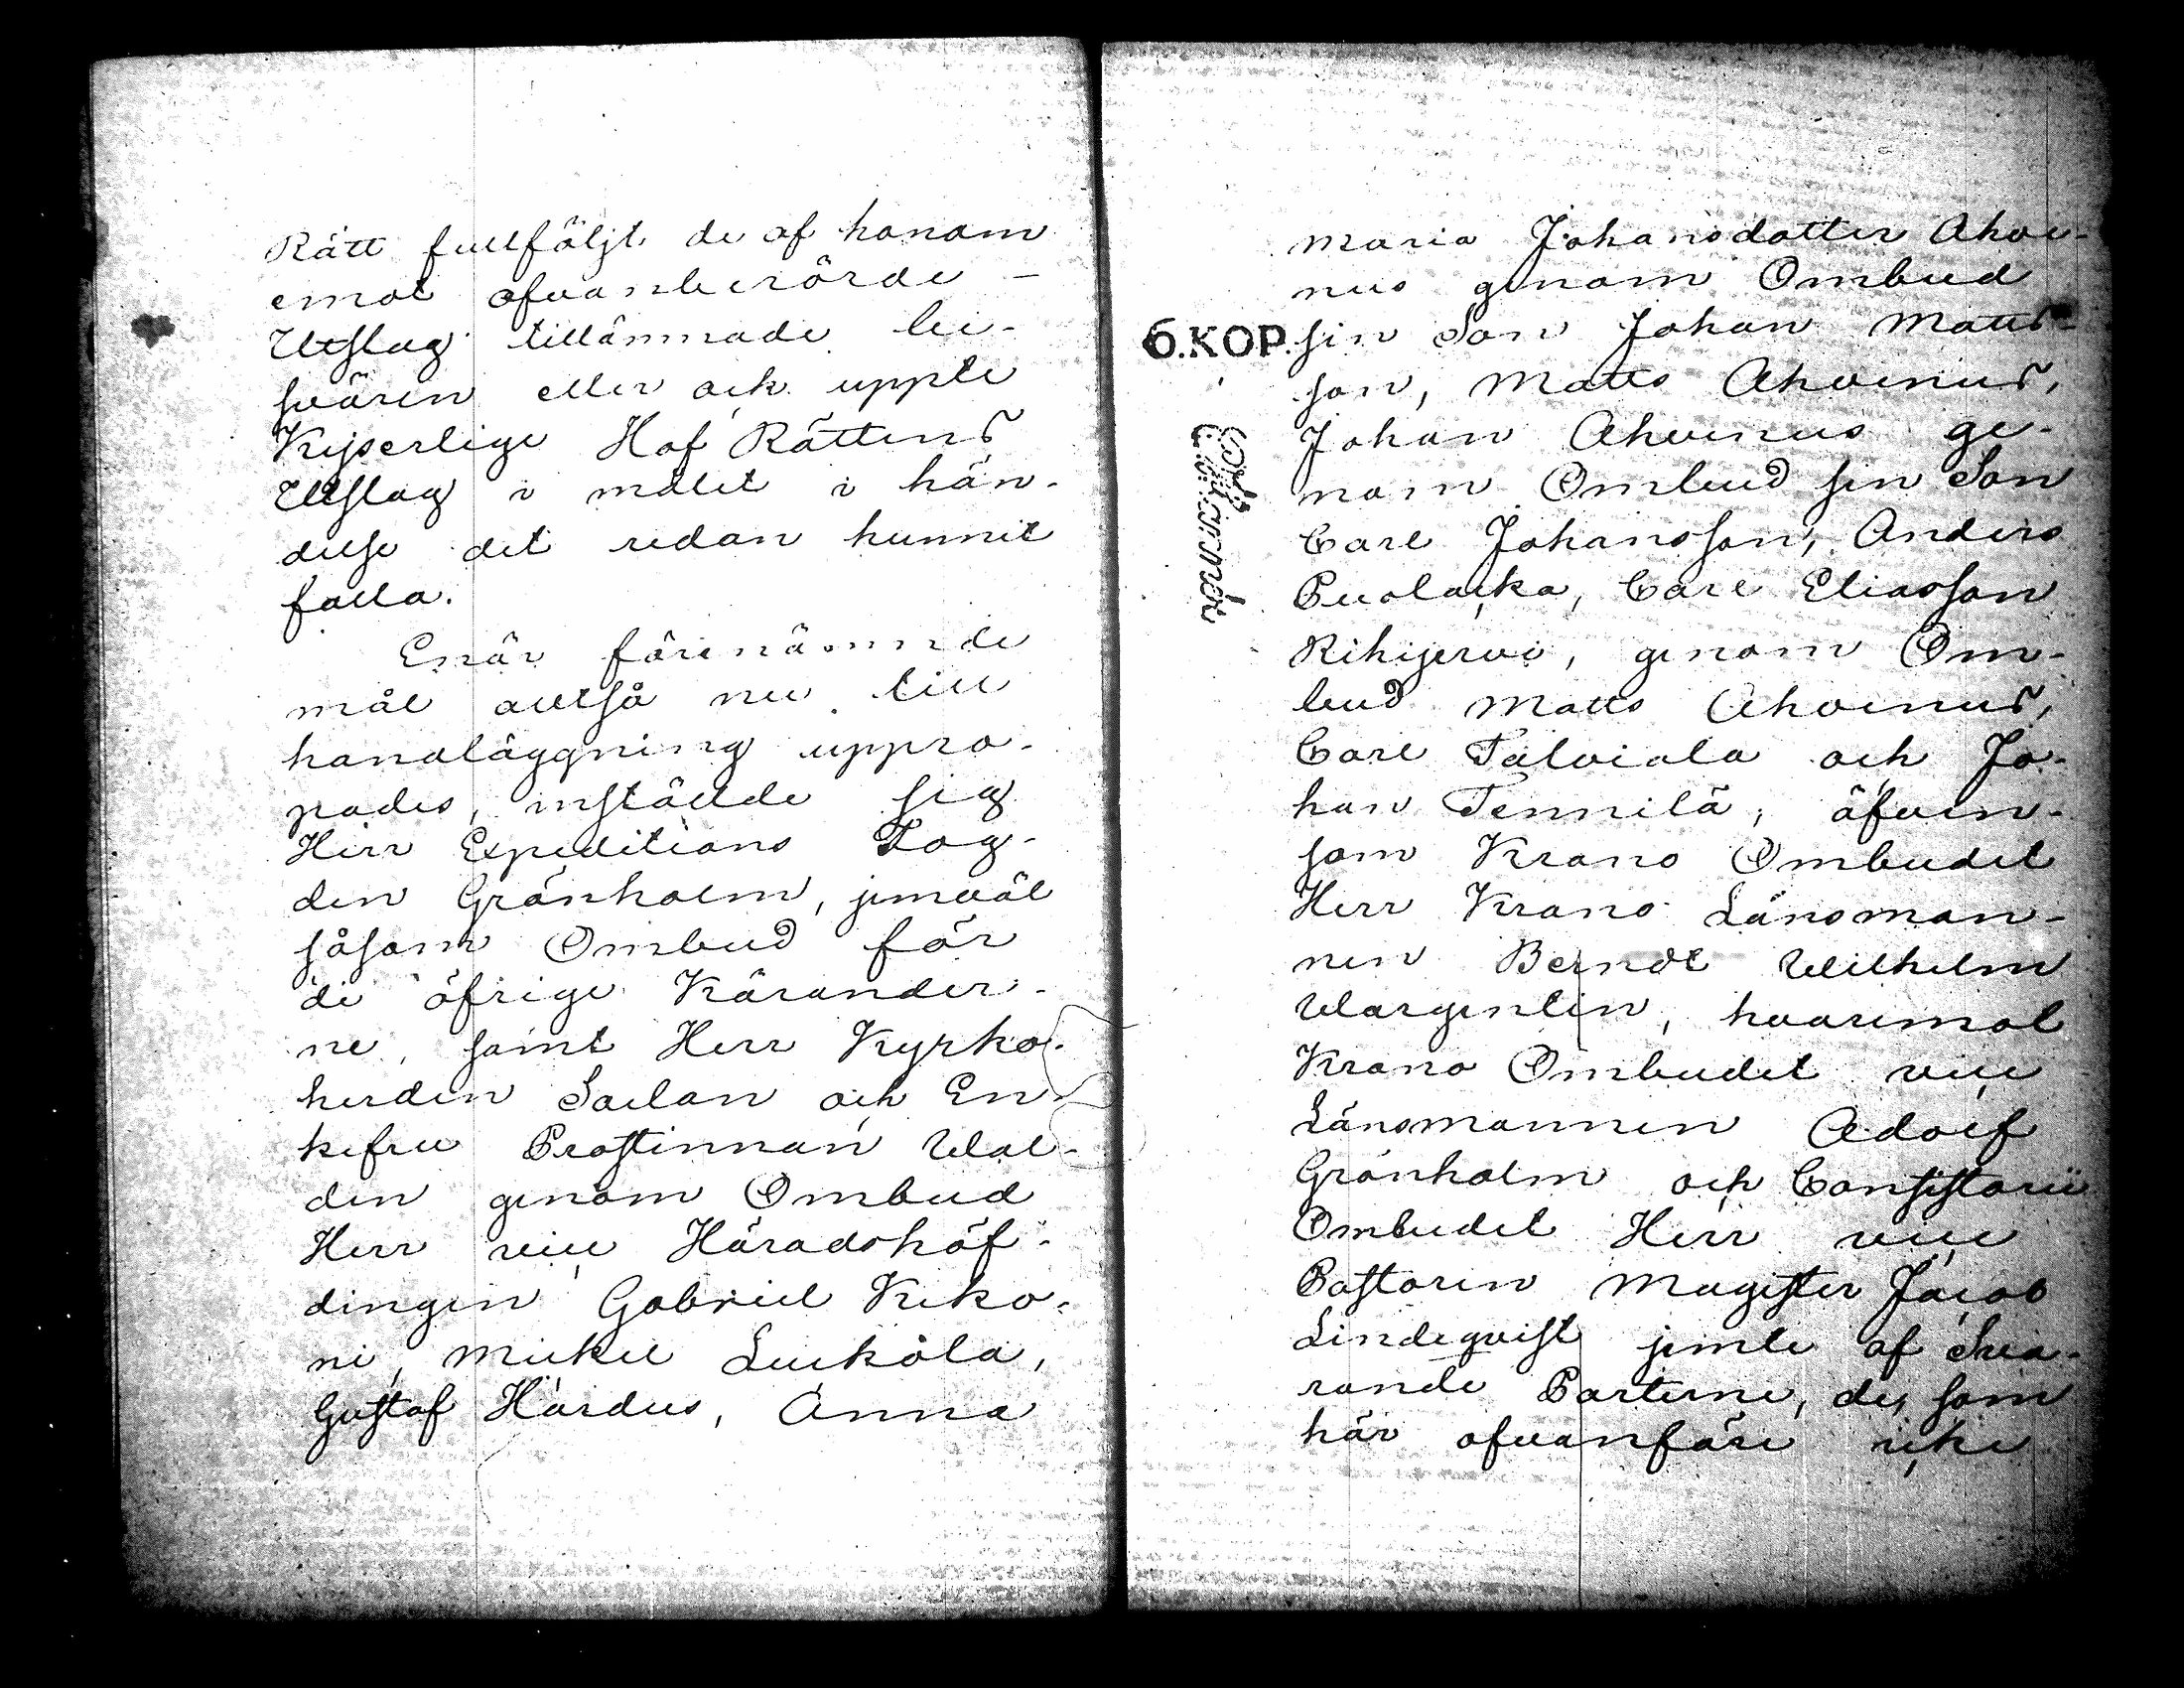 Rätt fullföljt de af honom
emot ofvanberörde –
Utslag tillämnade be-
svären eller ock uppte
Kejserlige Hof Rättens
Utslag i målet i hän-
delse det redan hunnit
falla.
Enär förenämnde
mål alltså nu till
handläggning uppro-
pades, instälde sig
Herr Expeditions Fog-
den Grönholm, jemväl
såsom Ombud för
de öfrige Kärander-
ne, samt Herr Kyrko-
herden Saelan och En-
kefru Prostinnan Wal-
den genom Ombud
Herr vice Häradshöf-
dingen Gabriel Keko-
ni, Mickel Luckola,
Gustaf Hardus, Anna
Maria Johansdotter Ahve-
nus genom Ombud
sin Son Johan Matts-
son, Matts Ahvenus,
Johan Ahvenus ge-
nom Ombud sin Son
Carl Johansson, Anders
Puolacka, Carl Eliasson
Rihijervi, genom Om-
bud Matts Ahvenus,
Carl Talviala och Jo-
han Tennilä, äfven-
som Krono Ombudet
Herr Krono Länsman-
nen Berndt Wilhelm
Wargentin, hvaremot
Krono Ombudet vice
Länsmannen Adolf
Grönholm och Consistorii
Ombudet Herr vice
Pastoren Magister Jacob
Lindeqvist jemte af Sva-
rande Parterne, de, som
här ofvanföre icke
6.KOP.